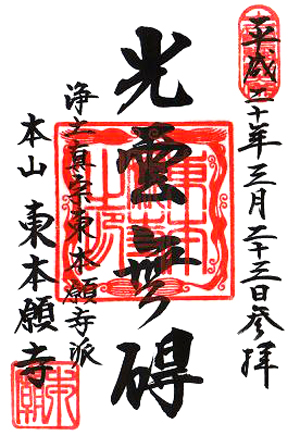 平成二十年三月二十三日参拝
光雲無碍
浄土真宗東本願寺派
本山 東本願寺